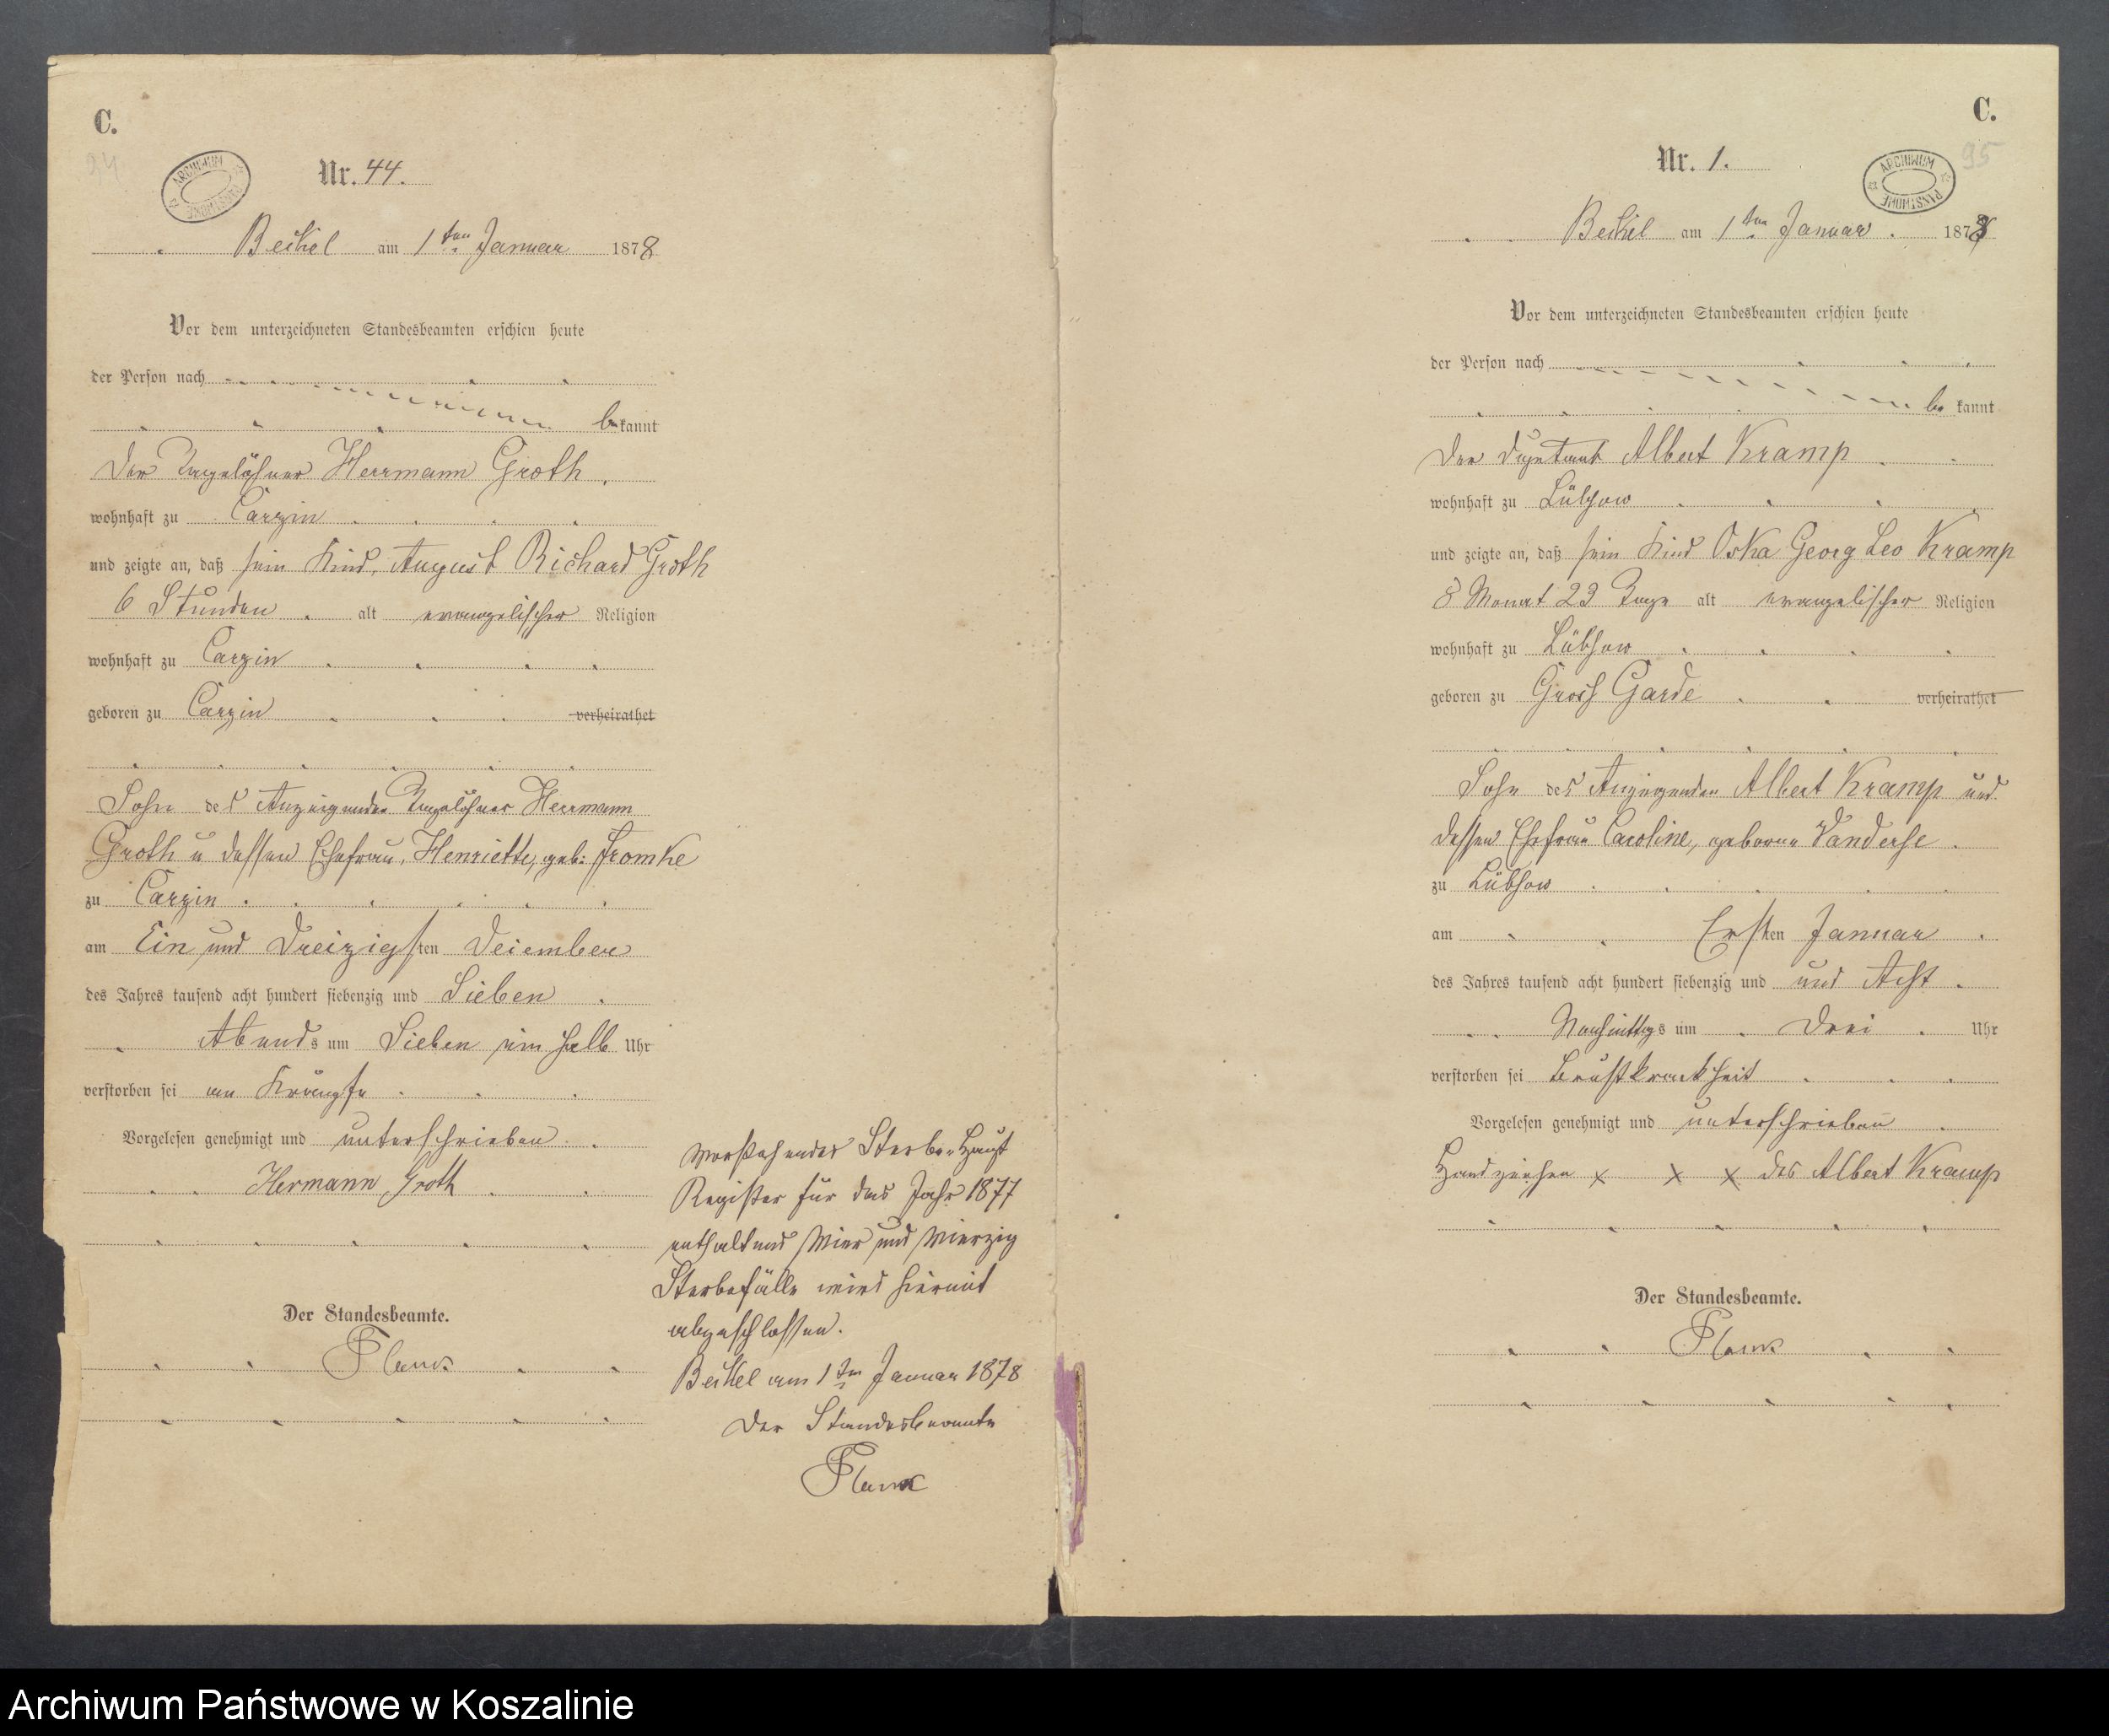 C.
94
ARCHIWUM PAŃSTWOWE
Nr. 44.
Beckel am 1ten Januar 1878
Vor dem unterzeichneten Standesbeamten erschien heute
der Person nach
bekannt
Der Tagelöhner Herrmann Groth,
wohnhaft zu Carzin
und zeigte an, daß sein Kind, August Richard Groth
6 Stunden alt evangelischer Religion
wohnhaft zu Carzin
geboren zu Carzin verheirathet
Sohn des Anzeigenden Tagelöhner Herrmann
Groth u dessen Ehefrau, Henriette, geb: Fromke
zu Carzin
am Ein und Dreizigsten December
des Jahres tausend acht hundert siebenzig und Sieben
Abends um Sieben ein halb Uhr
verstorben sei an Krämpfe
Vorgelesen genehmigt und unterschrieben
Hermann Groth
Der Standesbeamte.
Flank
Vorstehendes Sterbe-Haupt
Register für das Jahr 1877
enthaltend Vier und Vierzig
Sterbefälle wird hiermit
abgeschlossen.
Beckel am 1ten Januar 1878
Der Standesbeamte
Flank
C.
95
ARCHIWUM PAŃSTWOWE
Nr. 1.
Beckel am 1ten Januar 1878
Vor dem unterzeichneten Standesbeamten erschien heute
der Person nach
bekannt
Der Albert Kramp
wohnhaft zu Lübzow
und zeigte an, daß sein Kind Oska Georg Leo Kramp
8 Monat 23 Tage alt evangelischer Religion
wohnhaft zu Lübzow
geboren zu Gross Garde verheirathet
Sohn des Anzeigenden Albert Kramp und
dessen Ehefrau Caroline, geborne
zu Lübzow
am Ersten Januar
des Jahres tausend acht hundert siebenzig und und Acht
Nachmittags um Drei Uhr
verstorben sei Brustkrankheit
Vorgelesen genehmigt und unterschrieben
Handzeichen x x x des Albert Kramp
Der Standesbeamte.
Flank
Archiwum Państwowe w Koszalinie